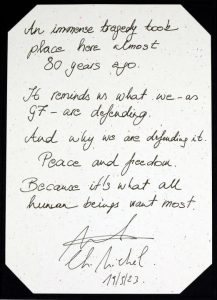 An immense tragedy took
place here almost
80 years ago.
It reminds us what we - as
G7 - are defending.
And why we are defending it.
Peace and freedom.
Because it's what all
human beings want most.
Ch. Michel
19/5/23.